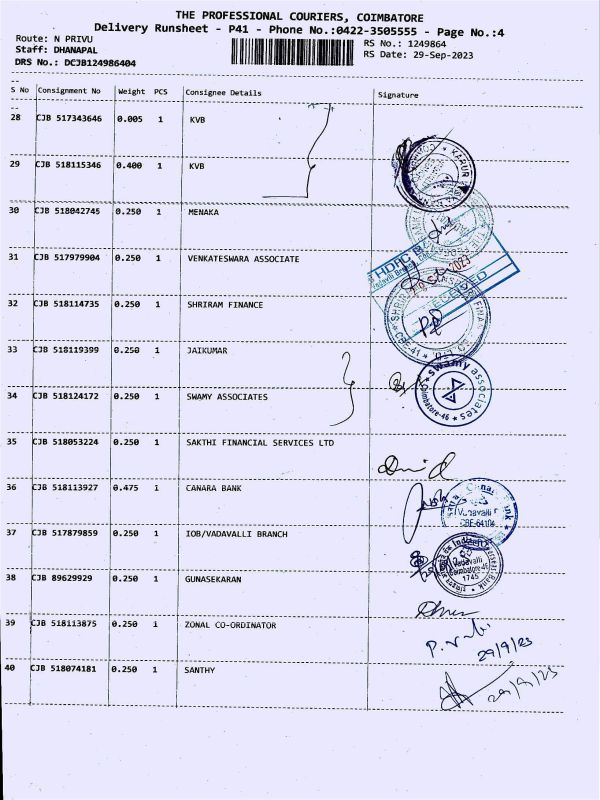 THE PROFESSIONAL COURIERS, COIMBATORE
Delivery Runsheet - P41 - Phone No.:0422-3505555 - Page No.:4
Route: N PRIVU
RS No.: 1249864
Staff: DHANAPAL
RS Date: 29-Sep-2023
DRS No.: DCJB124986404
S No Consignment No Weight PCS Consignee Details Signature
28 CJB 517343646 0.005 1 KVB
29 CJB 518115346 0.400 1 KVB
KARUR
30 CJB 518042745 0.250 1 MENAKA
31 CJB 517979904 0.250 1 VENKATESWARA ASSOCIATE
HDFC B
2023
32 CJB 518114735 0.250 1 SHRIRAM FINANCE
33 CJB 518119399 0.250 1 JAIKUMAR
34 CJB 518124172 0.250 1 SWAMY ASSOCIATES
swamy associates
Coimbatore-46
35 CJB 518053224 0.250 1 SAKTHI FINANCIAL SERVICES LTD
36 CJB 518113927 0.475 1 CANARA BANK
37 CJB 517879859 0.250 1 IOB/VADAVALLI BRANCH
Vadavalli
Coimbatore-46
1745
38 CJB 89629929 0.250 1 GUNASEKARAN
39 CJB 518113875 0.250 1 ZONAL CO-ORDINATOR
29/9/23
40 CJB 518074181 0.250 1 SANTHY